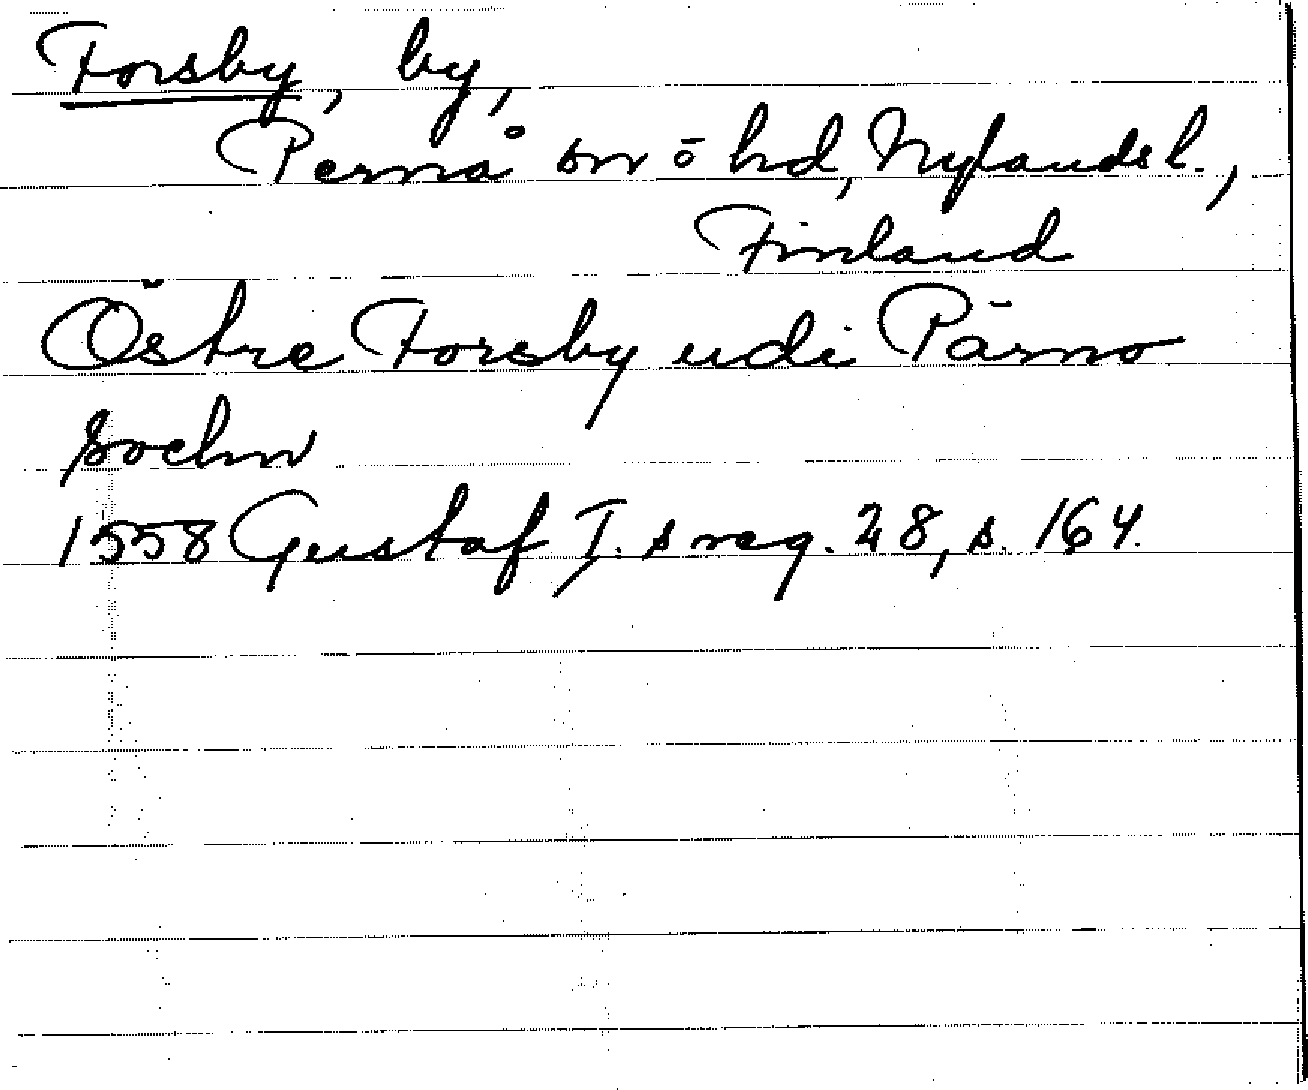 Forsby, by,
Pernå sn ö hd, Nylands l.,
Finland
Östre Forsby udi Pärno
sochn
1558 Gustaf I.s reg. 28, s. 164.